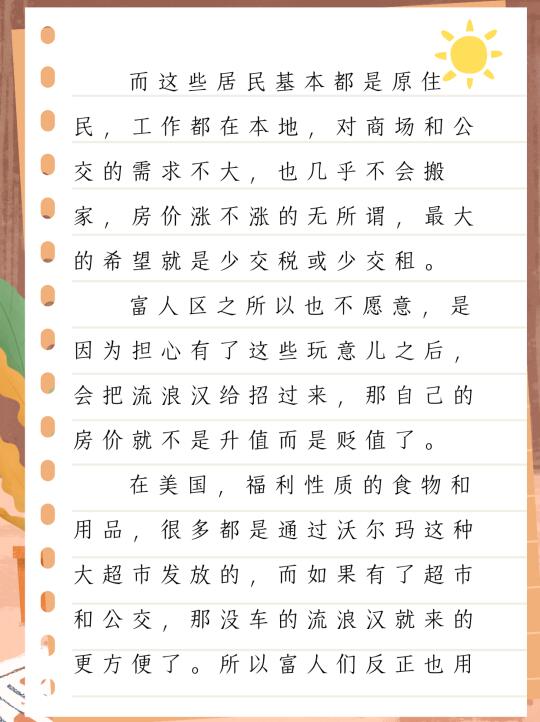 而这些居民基本都是原住
民，工作都在本地，对商场和公
交的需求不大，也几乎不会搬
家，房价涨不涨的无所谓，最大
的希望就是少交税或少交租。
富人区之所以也不愿意，是
因为担心有了这些玩意儿之后，
会把流浪汉给招过来，那自己的
房价就不是升值而是贬值了。
在美国，福利性质的食物和
用品，很多都是通过沃尔玛这种
大超市发放的，而如果有了超市
和公交，那没车的流浪汉就来的
更方便了。所以富人们反正也用